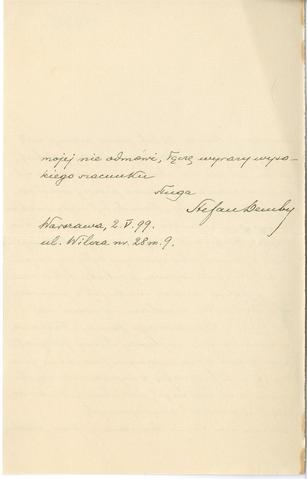 mojej nie odmówi, łączę wyrazy wyso-
kiego szacunku
sługa
Stefan Demby
Warszawa, 2. V. 99.
ul. Wilcza nr. 28 m. 9.